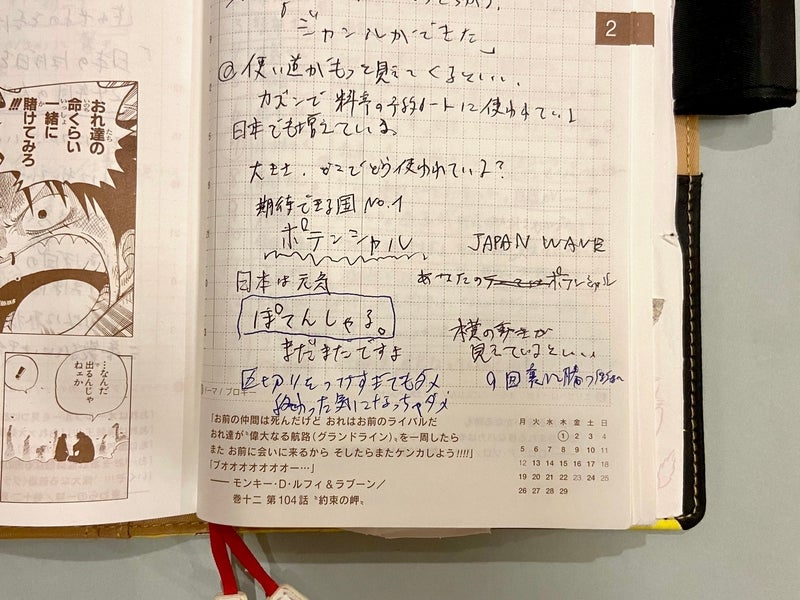 おれ達の
命くらい
一緒に
賭けてみろ
!!!
…なんだ
出るんじゃ
ねェか
!
2
ジャンルができた」
@使い道がもっと見えてくるといい、
日本でも増えている。
どこでどう使われている?
期待できる国 No.1
ポテンシャル
JAPAN WAVE
日本は元気
あなたの ポテンシャル
ぽてんしゃる。
まだまだですよ
横の動きが
見えているといい
区切りをつけすぎてもダメ
終わった気になっちゃダメ
9回裏に勝つ
ーマ/ブロギー
「お前の仲間は死んだけど おれはお前のライバルだ
おれ達が〝偉大なる航路(グランドライン)〟を一周したら
また お前に会いに来るから そしたらまたケンカしよう!!!!」
「ブオオオオオオオー…」
―― モンキー・D・ルフィ&ラブーン/
巻十二 第104話〝約束の岬〟
月 火 水 木 金 土 日
1 2 3 4
5 6 7 8 9 10 11
12 13 14 15 16 17 18
19 20 21 22 23 24 25
26 27 28 29